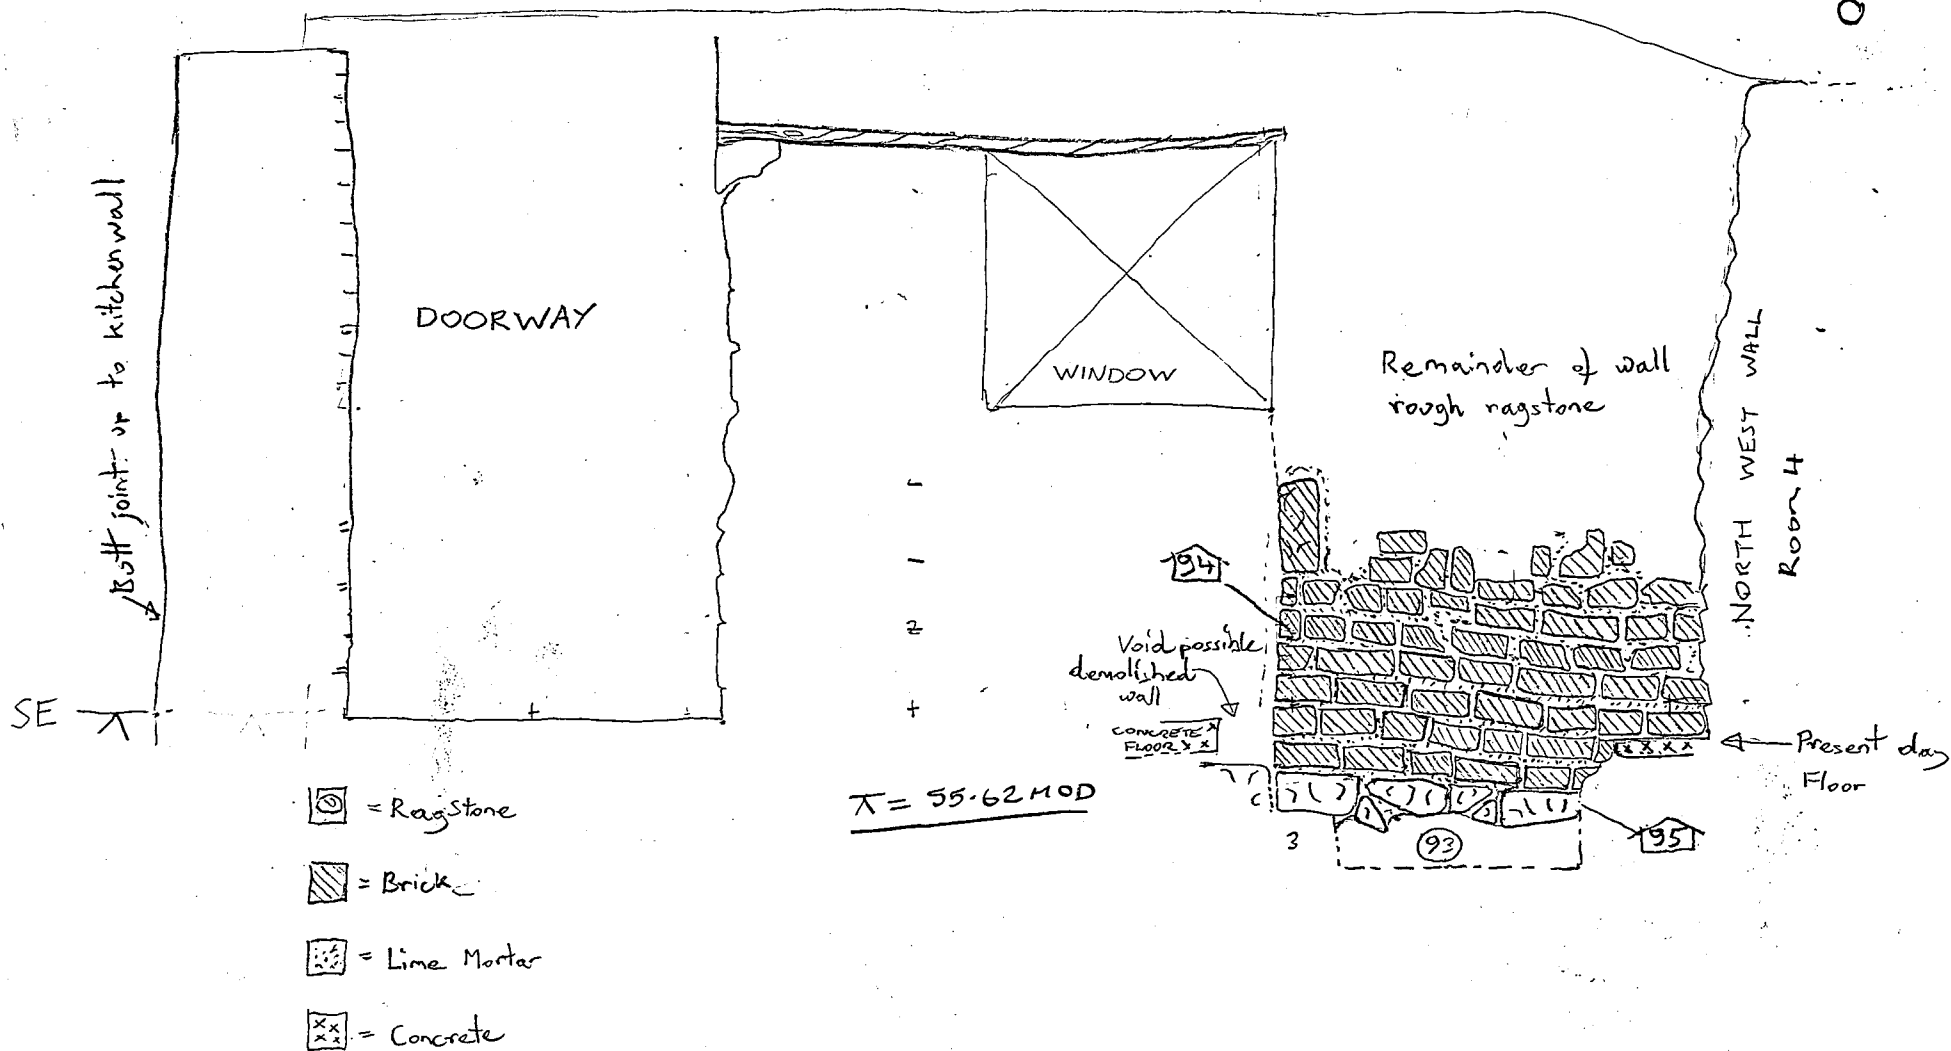 Butt joint up to kitchen wall
DOORWAY
WINDOW
Remainder of wall
rough ragstone
NORTH WEST WALL
Room 4
94
Void possible
demolished
wall
CONCRETE
FLOOR
SE
Present day
Floor
= Ragstone
= Brick
= Lime Mortar
= Concrete
⊼ = 55.62 MOD
3
93
95